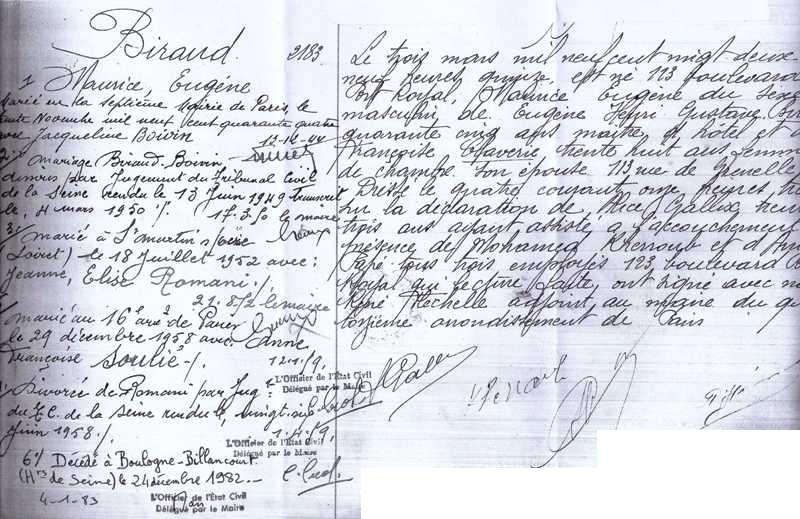 Biraud. 2183
1 Maurice, Eugène
Marié en la septième Mairie de Paris, le
Novembre mil neuf cent quarante quatre
avec Jacqueline Boivin
12-12-44
2°) mariage Biraud-Boivin
dissous par Jugement du Tribunal Civil
de la Seine rendu le 13 Juin 1949 transcrit
le, 4 mars 1950./. 17-3-50 le maire
3°) marié à St Martin s/
Loiret) le 18 Juillet 1952 avec:
Jeanne, Elise Romani./.
21-8-52 le maire
marié au 16e arr. de Paris
le 29 décembre 1958 avec Anne
Françoise Soulié./.
L'Officier de l'Etat Civil
Délégué par le Maire
Divorcé de Romani par Jug:
du T.C. de la Seine rendu le vingt six
Juin 1958./. 1-4-59,
L'Officier de l'Etat Civil
Délégué par le Maire
6°/ Décédé à Boulogne-Billancourt
(Hts de Seine) le 24 décembre 1982 —
4-1-83
L'Officier de l'Etat Civil
Délégué par le Maire
Le trois mars mil neuf cent vingt deux
neuf heures quinze, est né 113 boulevard
Port Royal, Maurice Eugène du sexe
masculin de Eugène Henri Gustave
quarante cinq ans maître d'hôtel et d
Françoise Claverie, trente huit ans femme
de chambre son épouse 113 rue de Grenelle
Dressé le quatre courant onze heures
sur la déclaration de Alice Gallux, trente
trois ans ayant assisté à l'accouchement
présence de Mohamed et d
tous trois employés 123, boulevard
Royal qui lecture faite, ont signé avec
René adjoint au maire du qua
torzième arrondissement de Paris